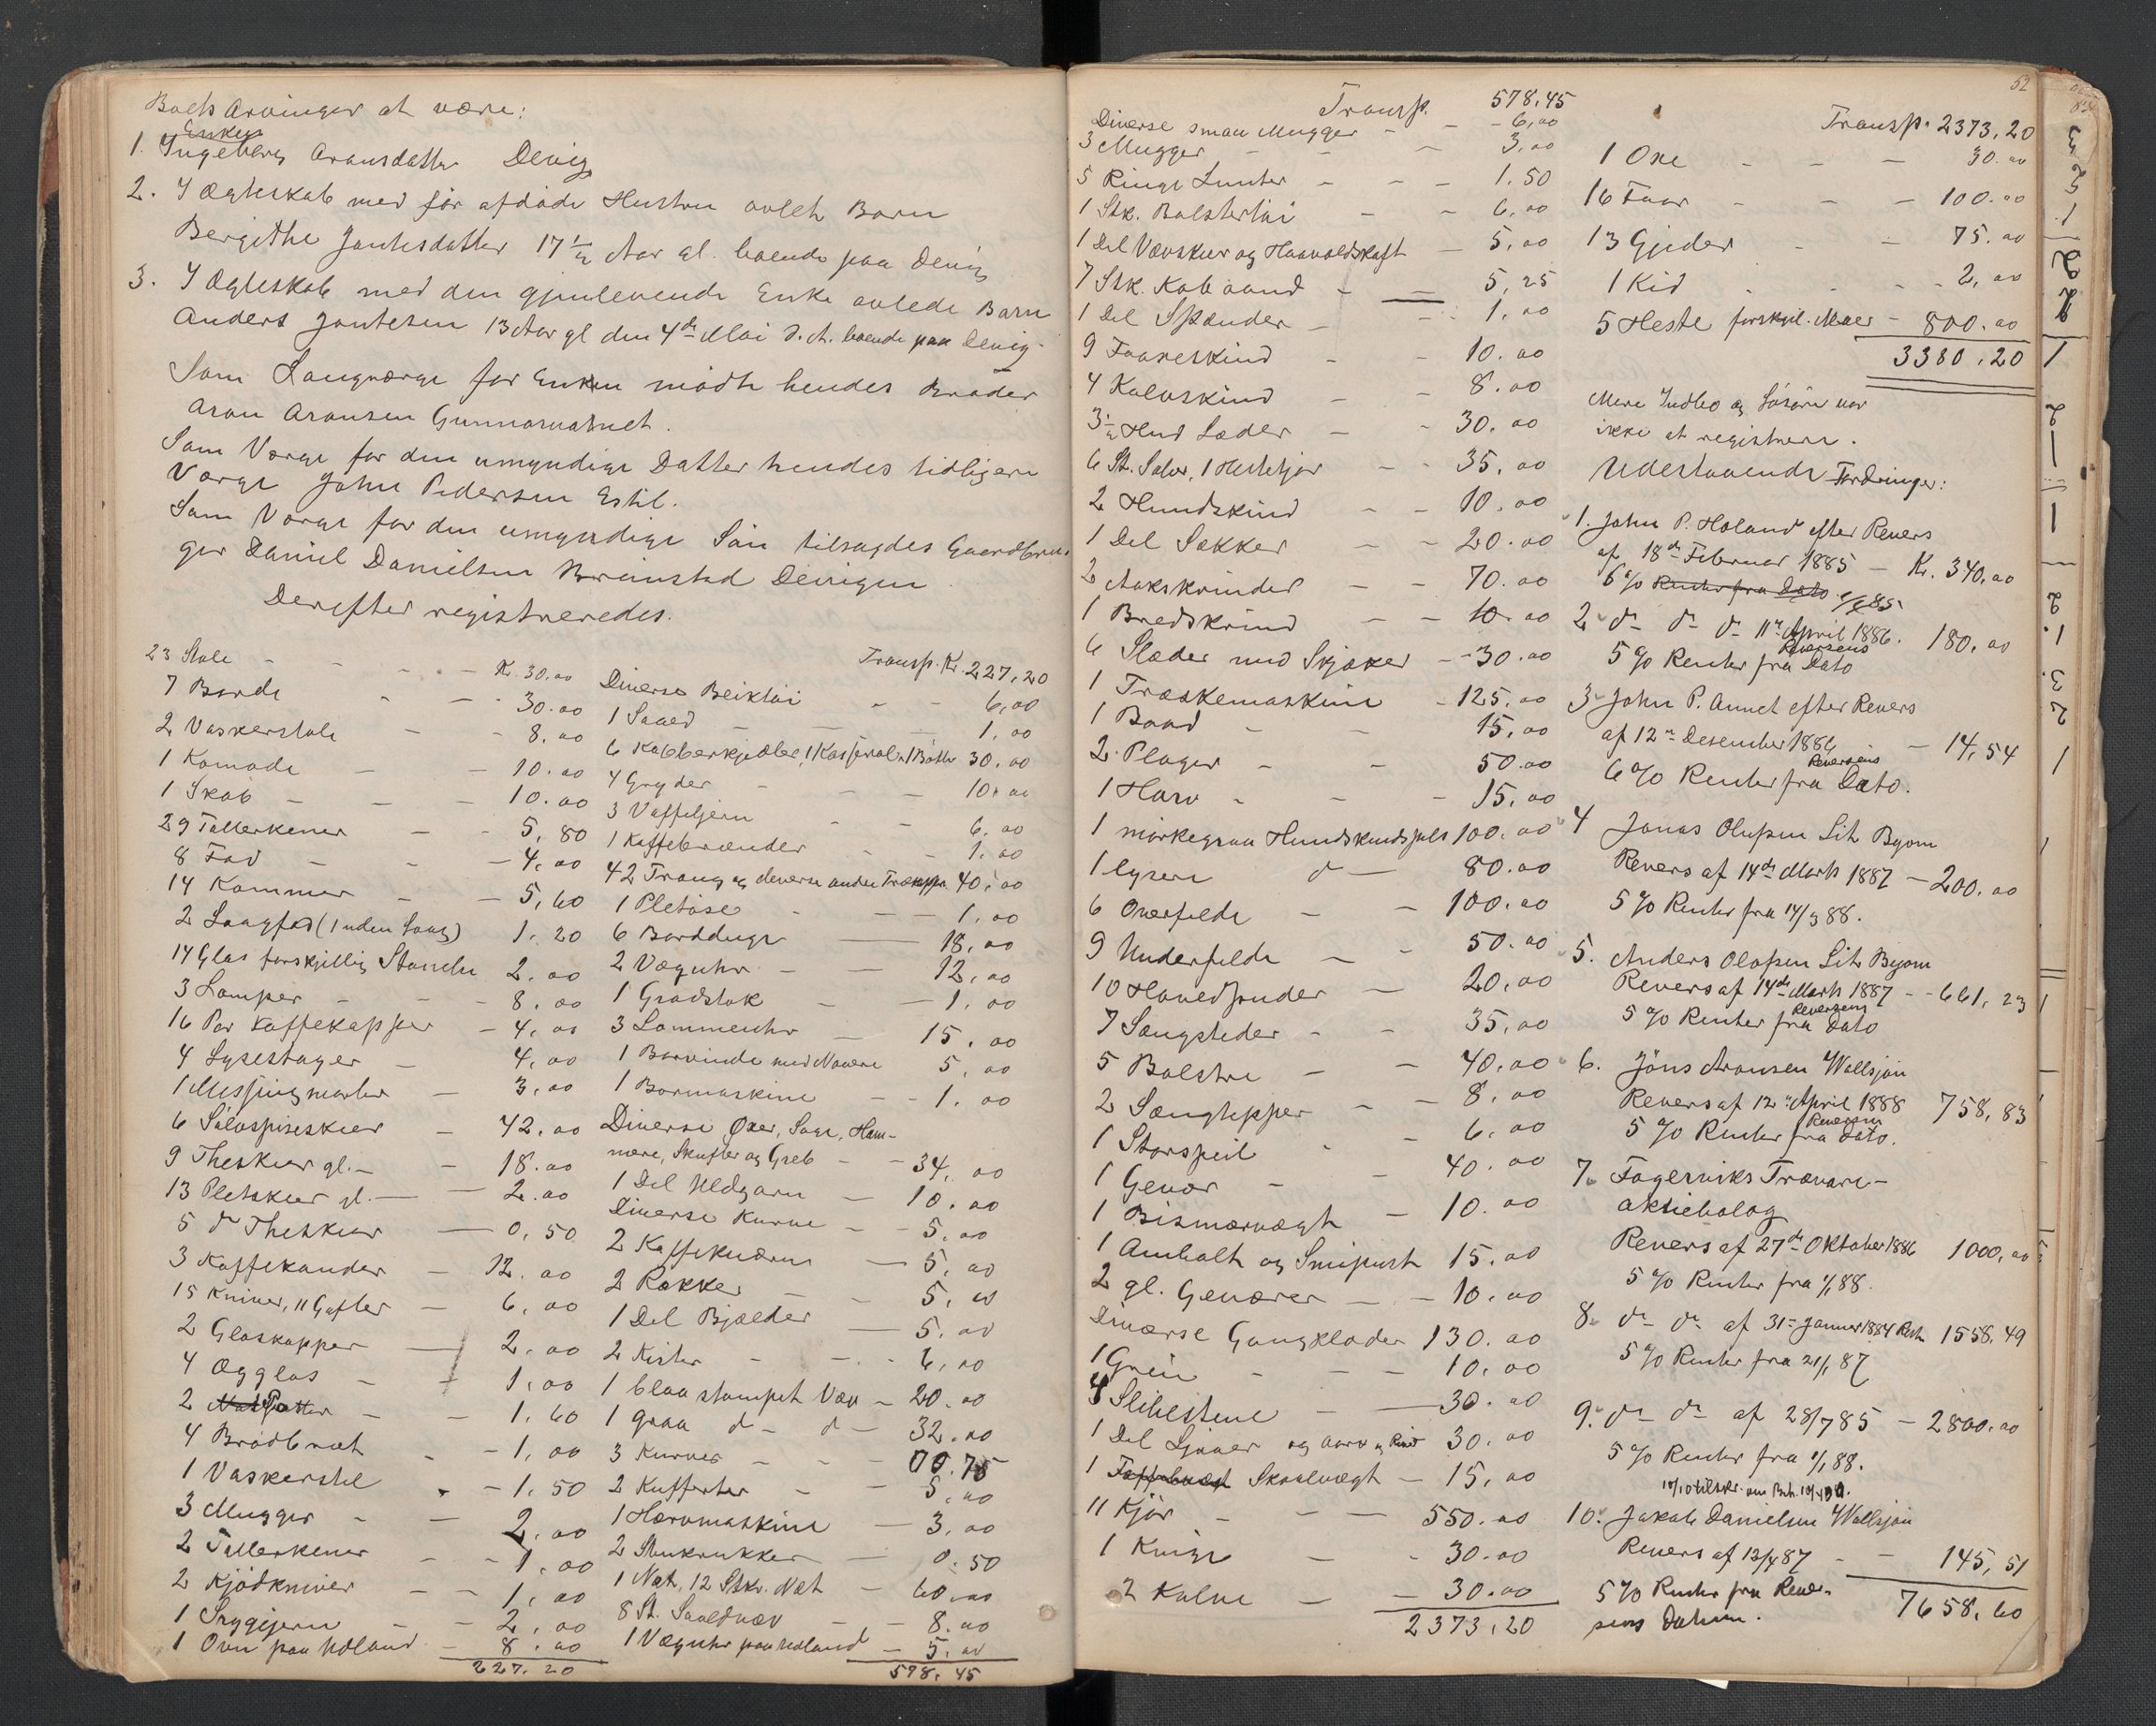 Boets Arvinger at være:
Enken
1. Ingeborg Aronsdatter Devig
2. I Ægteskab med før afdøde Hustru avlet Barn
Bergithe Jontesdatter 17 1/2 Aar gl. boende paa Devig
3. I Ægteskab med den gjenlevende Enke avlede Barn
Anders Jontesen 13 Aar gl den 4de Mai d. A. boende paa Devig.
Som Laugværge for Enken mødte hendes Broder
Aron Aronsen Gunnarvatnet.
Som Værge for den umyndige Datter hendes tidligere
Værge John Pedersen Estil.
Som Værge for den umyndige Søn tilsagdes Gaardbru-
ger Daniel Danielsen Breinstad Devigen.
Derefter registreredes.
23 Stole - - - Kr. 30.00
7 Borde - - 30.00
2 Vaskerstole - - 8.00
1 Komode - - 10.00
1 Skab - - - 10.00
29 Tallerkener - - 5,80
8 Fad - - - 4,00
14 Kommer - - 5,60
2 Laagfad (1 uden Laag) 1.20
14 Glas forskjellig Størrelse 2.00
3 Lamper - - - 8.00
16 Par Kaffekapper - 4.00
4 Lysestager - 4,00
1 Messingmorter - 3,00
6 Sølvspiseskeer - 42.00
9 Theskeer gl. - - 18.00
13 Pletskeer gl. - - 2.00
5 do Theskeer - 0,50
3 Kaffekander - 12.00
15 Kniver, 11 Gafler - 6,00
2 Glaskopper - 2.00
4 Ægglas - - 1,00
2 Potter - - 1.60
4 Brødbræt - 1,00
1 Vaskerstel - 1.50
3 Mugger - - 2,00
2 Tallerkener - - 1.00
2 Kjødkniver - - 1,00
1 Strygjern - - 2,00
1 Ovn paa Holand - 8.00
227.20
Transp. Kr. 227,20
Diverse Beiktøi - - 6,00
1 Saaed - - 1.00
6 Kobberkjedler, 1 Kasserol, 1 Bøtte 30.00
4 Gryder - - - 10.00
3 Vaffeljern - - 6.00
1 Kaffebrænder - - 1.00
42 Traug og diverse andre Trækopper 40.00
1 Pletøse - - 1.00
6 Bordduge - 18,00
2 Væguhr - - 12,00
1 Gradstok - - 1.00
3 Lommeuhr - 15.00
1 Borvinde med Navere 5,00
1 Bormaskine - - 1.00
Diverse Øxer, Sage, Ham-
mere, Skufler og Greb - - 34,00
1 Del Uldgarn - 10.00
Diverse Kurve - - 5.00
2 Kaffekværne - 5,00
2 Rokker - - 5,00
1 Del Bjælder - 5.00
2 Kister - - - 6,00
1 blaa stampet Væv - 20.00
1 graa d- d- 32.00
3 Kurver - - - 00.75
2 Kufferter - - 5,00
1 Harvmaskine - 3,00
2 Stenkrukker - 0.50
1 Not, 12 Stk. Næt - 60,00
8 St. Saueldvæv - - 8.00
1 Væguhr paa Holand - 5.00
578.45
52
Transp. 578.45
Diverse smaa Mugger - - 6,00
3 Mugger - - - 3,00
5 Ringe Lunter - - - 1.50
1 Stk. Bolstertøi - - 6,00
1 Del Vævskeer og Haavoldskaft - 5,00
7 Stk. Kobaand - - 5,25
1 Del Spænder - - 1.00
9 Faareskind - - 10.00
4 Kalveskind - - 8.00
3 1/2 Hud Læder - - 30.00
6 St. Saler, 1 Hestetjor - - 35,00
2 Hundskind - - 10.00
1 Del Sækker - - 20.00
2 Aakskrinder - - 70.00
1 Bredskrind - - 10.00
6 Slæder med Skjæker - - 30.00
1 Træskemaskine - 125.00
1 Baad - - 15,00
2 Ploger - - 50.00
1 Harv - - - 15,00
1 mørkegraa Hundskindspels 100.00
1 lysere d- 80.00
6 Overfelde - - 100.00
9 Underfelde - - 50.00
10 Hovedpuder - 20,00
7 Sengsteder - - 35,00
5 Bolstre - - 40,00
2 Sengtepper - - 8,00
1 Storspeil - 6,00
1 Gevær - - 40.00
1 Bismervægt - 10.00
1 Ambolt og Smipust 15.00
2 gl. Geværer - - 10.00
Diverse Gangklæder 130.00
1 Grein - - - 10,00
4 Slibestene - 30.00
1 Del Ljaaer og Aarv og River 30.00
1 Skaalvægt - 15,00
11 Kjør - - - 550.00
1 Kvige - - 30.00
2 Kalve - - 30.00
2373,20
Transp. 2373,20
1 Oxe - - - 30.00
16 Faar - - - 100.00
13 Gjeder - - 75.00
1 Kid - - - 2,00
5 Heste forskjel. Alder - 800.00
3380.20
Mere Indbo og Løsøre var
ikke at registrere.
Udestaaende Fordringer:
1. John P. Holand efter Revers
af 18de Februar 1885 - Kr. 340,00
6% Renter fra Dato
2. do do do 11te April 1886. 180.00
5% Renter fra Reversens Dato
3. John P. Annet efter Revers
af 12te Desember 1886 - 14,54
6% Renter fra Reversens Dato.
4 Jonas Olofsen Lit Byom
Revers af 14de Marts 1887 - 200.00
5% Renter fra 14/3 88.
5. Anders Olofsen Lit Byom
Revers af 14de Marts 1887 - - 661,23
5% Renter fra Reversens Dato
6. Jöns Aronsen Wallsjön
Revers af 12te April 1888 758,83
5% Renter fra Reversens Dato.
7. Fagerviks Trævare-
aktiebolag
Revers af 27de Oktober 1886 1000,00
5% Renter fra 1/1 88.
8. do do af 31te Januar 1884 Rest 1558.49
5% Renter fra 21/1 87
9. do do af 28/7 85 - 2800.00
5% Renter fra 1/1 88.
10. Jakob Danielsen Wallsjön
Revers af 12/4 87 - - 145,51
5% Renter fra Rever-
sens Datum.
7658.60